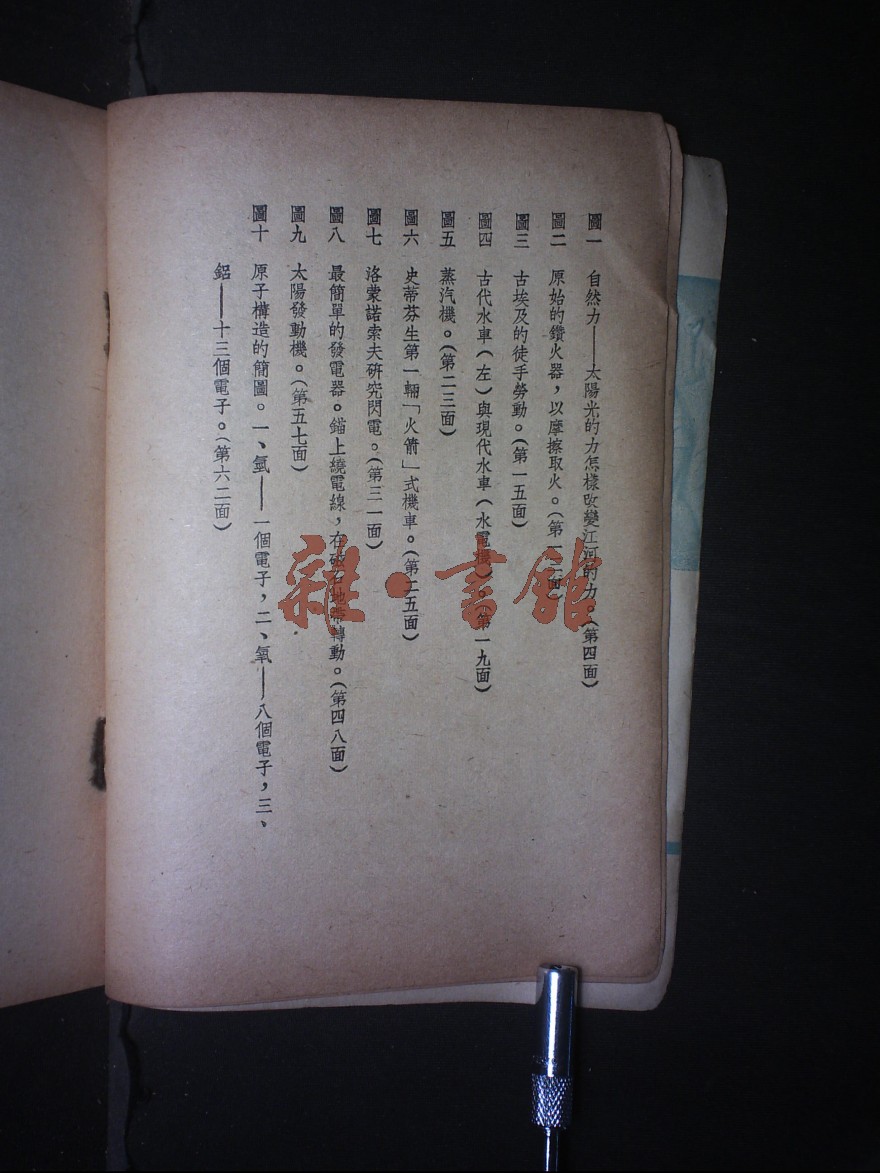 圖一　自然力——太陽光的力怎樣改變江河的力。（第四面）
圖二　原始的鑽火器，以摩擦取火。（第一二面）
圖三　古埃及的徒手勞動。（第一五面）
圖四　古代水車（左）與現代水車（水電機）。（第一九面）
圖五　蒸汽機。（第二三面）
圖六　史蒂芬生第一輛「火箭」式機車。（第二五面）
圖七　洛蒙諾索夫研究閃電。（第三一面）
圖八　最簡單的發電器。錨上繞電線，在磁石地帶轉動。（第四八面）
圖九　太陽發動機。（第五七面）
圖十　原子構造的簡圖。一、氫——一個電子，二、氧——八個電子，三、
鋁——十三個電子。（第六二面）
雜·書館